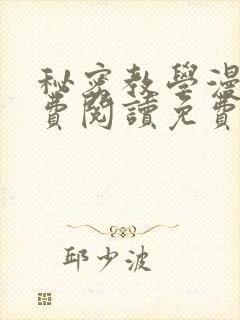 秘密教學漫
費閱讀免費
邱少波